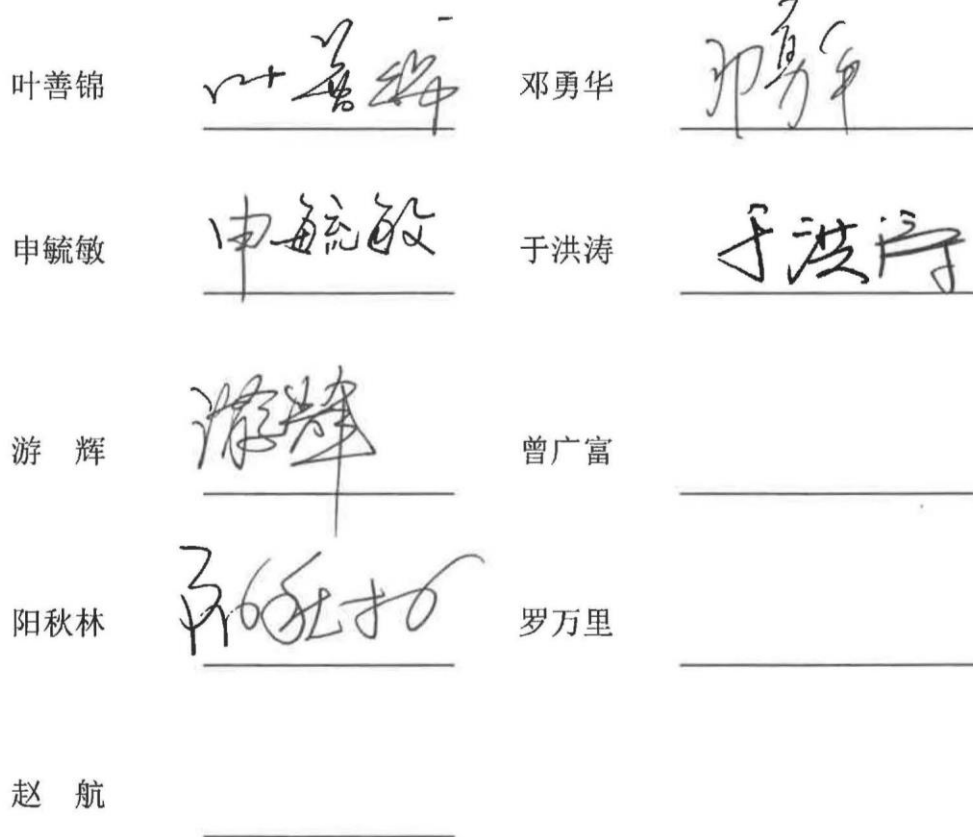 叶善锦 叶善锦 邓勇华 邓勇华
申毓敏 申毓敏 于洪涛 于洪涛
游 辉 游辉 曾广富
阳秋林 阳秋林 罗万里
赵 航